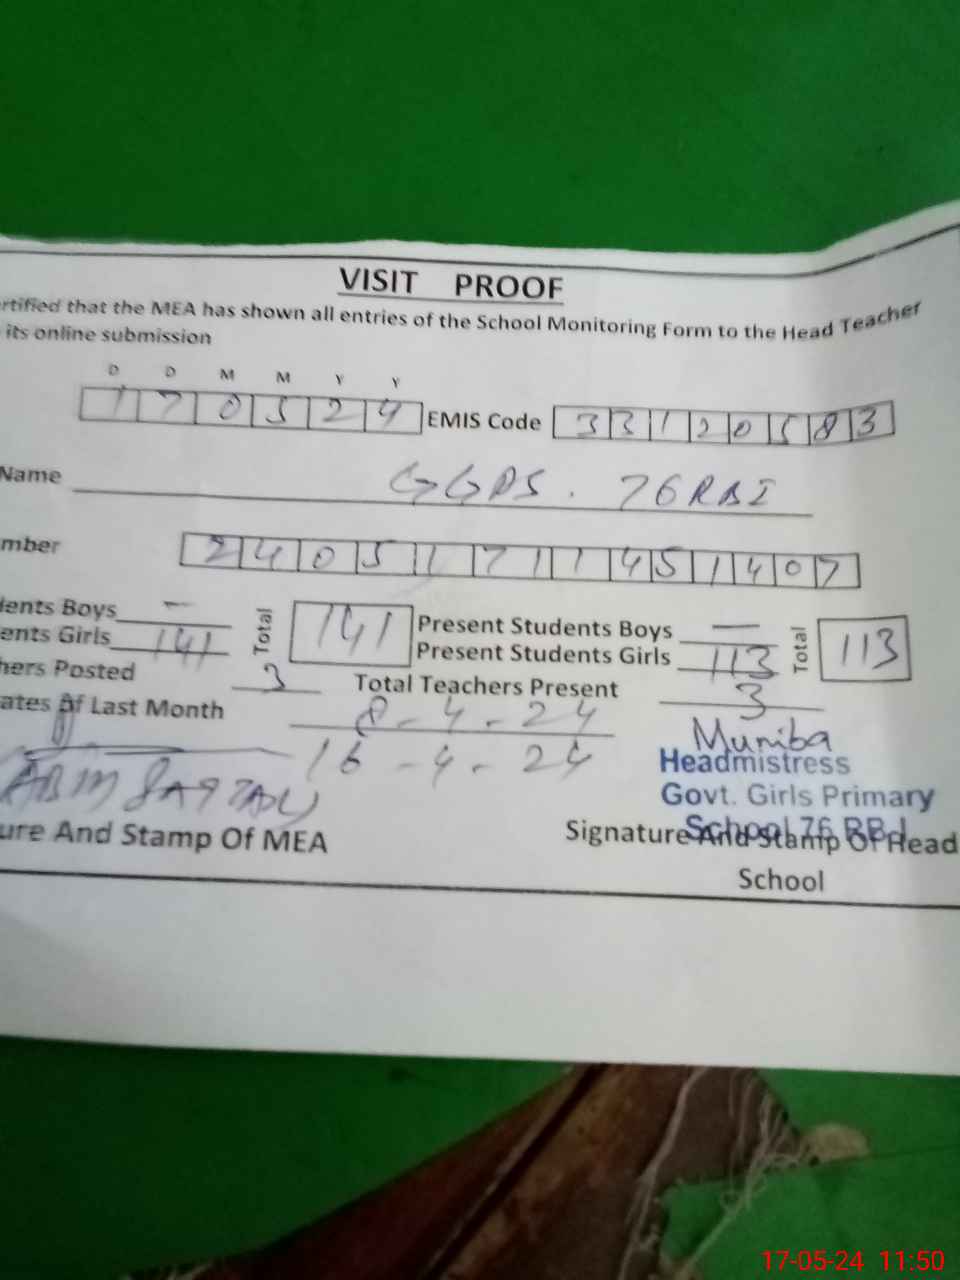 VISIT PROOF
rtified that the MEA has shown all entries of the School Monitoring Form to the Head Teacher
its online submission
D D M M Y Y
1 7 0 5 2 4 EMIS Code 3 3 1 2 0 5 8 3
Name GGPS. 76RBI
mber 2 4 0 5 1 7 1 1 4 5 1 4 0 7
dents Boys — Total 141 Present Students Boys — Total 113
ents Girls 141 Present Students Girls 113
hers Posted 3 Total Teachers Present 3
ates Of Last Month 8-4-24
16-4-24
Muniba
Headmistress
Govt. Girls Primary
School 76 RB I
ure And Stamp Of MEA Signature And Stamp Of Head
School
17-05-24 11:50